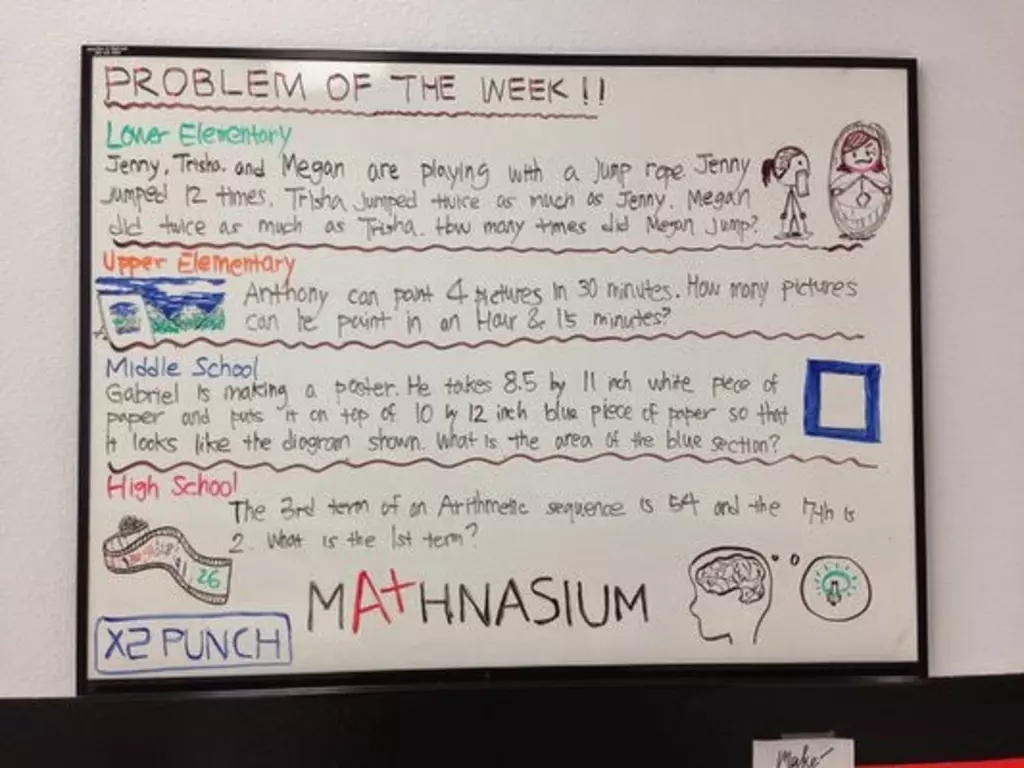 PROBLEM OF THE WEEK!!
Lower Elementary
Jenny, Trisha, and Megan are playing with a jump rope Jenny
jumped 12 times. Trisha jumped twice as much as Jenny. Megan
did twice as much as Trisha. How many times did Megan jump?
Upper Elementary
Anthony can paint 4 pictures in 30 minutes. How many pictures
can he paint in an Hour & 15 minutes?
Middle School
Gabriel is making a poster. He takes 8.5 by 11 inch white piece of
paper and puts it on top of 10 by 12 inch blue piece of paper so that
it looks like the diagram shown. What is the area of the blue section?
High School
The 3rd term of an Arithmetic sequence is 54 and the 7th is
2. What is the 1st term?
26
MA+HNASIUM
X2 PUNCH
Make